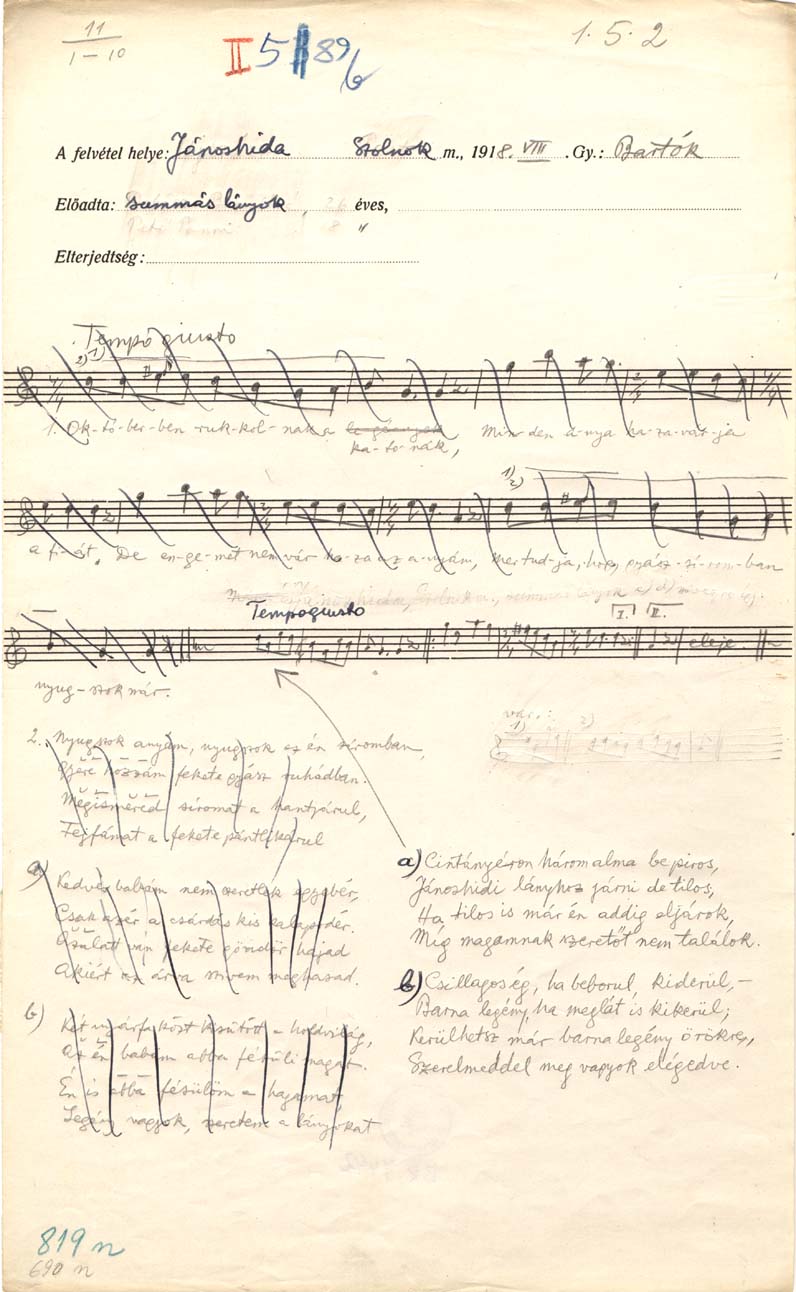 11
1 – 10
II 5 89
b
1. 5. 2
A felvétel helye: Jánoshida Szolnok m., 1918. VIII. Gy.: Bartók
Előadta: summás lányok, 26 éves,
18 "
Elterjedtség:
Tempo giusto
2) 1)
1. Ok-tó-ber-ben ruk-kol-nak a le-gények Min-den a-nya ha-za-vár-ja
ka-to-nák,
1)
2)
a fi-át, De en-ge-met nem vár ha-za az a-nyám, Mer tud-ja, hogy gyász-sí-rom-ban
Tempo giusto
I. II.
eleje
nyug-szok már.
var.:
1) 2)
2. Nyugszok anyám, nyugszok az én síromban,
Gyere hozzám fekete gyász ruhádban.
Mëgismërëd síromat a hantjárul,
Fejfámat a fekete pántlikárul
a) Kedves balzám nem szeretlek egyebér,
Csak azér a csárdás kis kalapodér.
Azalatt van fekete göndör hajad
Akiért az árva szivem meghasad.
b) Két nyárfa közt kisütött a holdvilág,
Az én babám abba fésüli magát.
Én is abba fésülöm a hajamat,
Legény vagyok, szeretem a lányokat
a) Cintányéron három alma be piros,
Jánoshidi lányhoz járni de tilos,
Ha tilos is már én addig eljárok,
Míg magamnak szeretőt nem találok.
b) Csillagos ég, ha beborul, kiderül, –
Barna legény, ha meglát is kikerül;
Kerülhetsz már barna legény örökre,
Szerelmeddel meg vagyok elégedve.
819 n
690 n